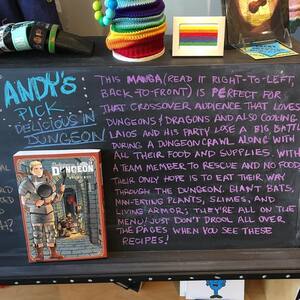 ANDY'S
PICK
DELICIOUS IN
DUNGEON
THIS MANGA (READ IT RIGHT-TO-LEFT,
BACK-TO-FRONT) IS PERFECT FOR
THAT CROSSOVER AUDIENCE THAT LOVES
DUNGEONS & DRAGONS AND ALSO COOKING.
LAIOS AND HIS PARTY LOSE A BIG BATTLE
DURING A DUNGEON CRAWL ALONG WITH
ALL THEIR FOOD AND SUPPLIES. WITH
A TEAM MEMBER TO RESCUE AND NO FOOD,
THEIR ONLY HOPE IS TO EAT THEIR WAY
THROUGH THE DUNGEON. GIANT BATS,
MAN-EATING PLANTS, SLIMES, AND
LIVING ARMOR; THEY'RE ALL ON THE
MENU! JUST DON'T DROOL ALL OVER
THE PAGES WHEN YOU SEE THESE
RECIPES!
DUNGEON